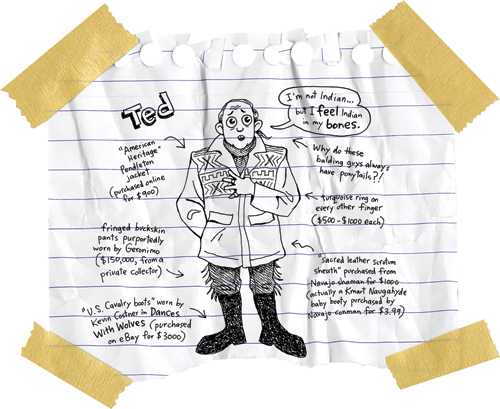 Ted
I'm not Indian...
but I feel Indian
in my bones.
"American
Heritage"
Pendleton
jacket
(purchased online
for $900)
Why do these
balding guys always
have ponytails?!
turquoise ring on
every other finger
($500-$1000 each)
fringed buckskin
pants purportedly
worn by Geronimo
($150,000, from a
private collector)
"sacred leather scrotum
sheath" purchased from
Navajo shaman for $1000
(actually a Kmart Naugahyde
baby booty purchased by
Navajo conman for $3.99)
"U.S. Cavalry boots" worn by
Kevin Costner in Dances
With Wolves (purchased
on eBay for $3000)